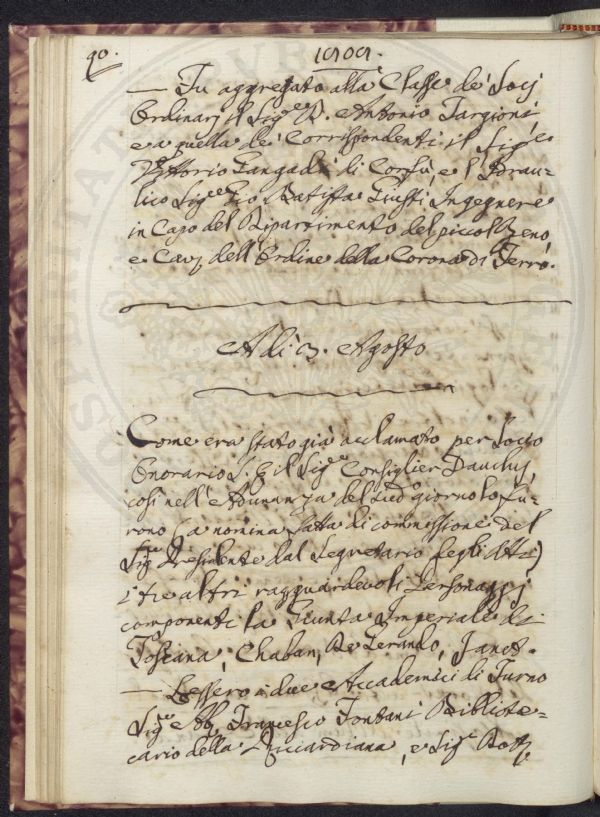 40.
1808.
— Fu aggregato alla Classe de' Socj
Ordinarj il Sig.re D. Antonio Targioni
e a quella de' Corrispondenti il Sig.re
Vittorio Gangadi di Corfù, e l'Idrau-
lico Sig.re Gio Batista Giusti Ingegnere
in Capo del Dipartimento del piccol Reno
e Cav. dell'Ordine della Corona di Ferro.
A dì 3. Agosto
Come era stato già acclamato per Socio
Onorario S. E il Sig.re Consiglier Dauchy,
così nell'Adunanza del sud.o giorno lo fu-
rono (a nomina fatta di commissione del
Sig.re Presidente dal Segretario degli Atti)
i tre altri ragguardevoli Personaggj
componenti la Giunta Imperiale di
Toscana, Chaban, De Gerando, Janet.
— Lessero i due Accademici di Turno
Sig.re Ab. Francesco Fontani Bibliote-
cario della Riccardiana, e Sig.r Dott.